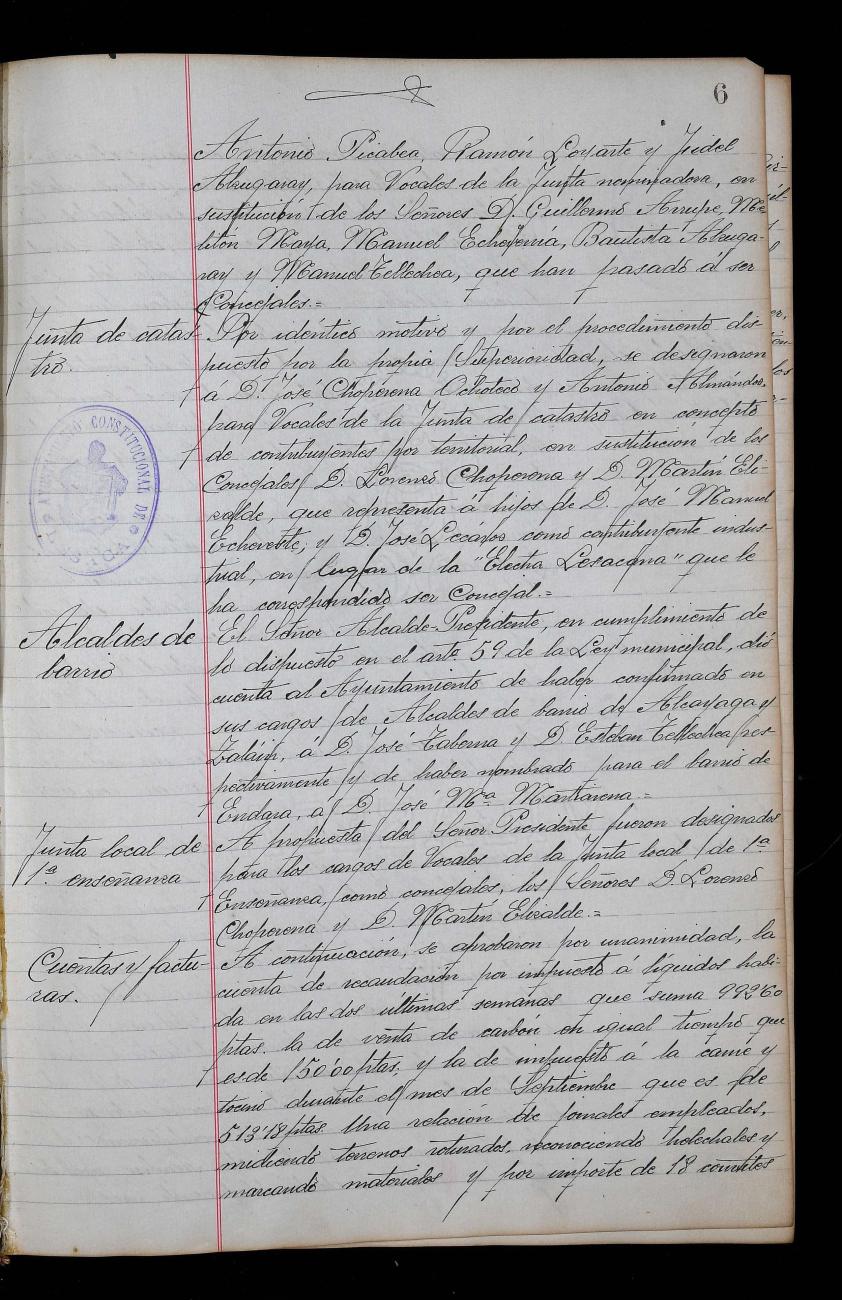 6
Antonio Picabea, Ramón Loyarte y Fidel
Alzugaray, para Vocales de la Junta nominadora, en
sustitución de los Señores D. Guillermo Arrupe, Me-
litón Maya, Manuel Echeverría, Bautista Alzuga-
ray y Manuel Tellechea, que han pasado á ser
Concejales.=
Junta de catas-
tro.
Por idéntico motivo y por el procedimiento dis-
puesto por la propia Superioridad, se designaron
á D. José Choperena Ochoteco y Antonio Almándoz,
para Vocales de la Junta de catastro en concepto
de contribuyentes por territorial, en sustitución de los
Concejales D. Lorenzo Choperena y D. Martín Eli-
zalde, que representa á hijos de D. José Manuel
Echeveste; y D. José como contribuyente indus-
trial, en lugar de la "Electra Lesacana" que le
ha correspondido ser Concejal.=
AYUNTAMIENTO CONSTITUCIONAL DE
LESACA
Alcaldes de
barrio
El Señor Alcalde-Presidente, en cumplimiento de
lo dispuesto en el artº 59 de la Ley municipal, dió
cuenta al Ayuntamiento de haber confirmado en
sus cargos de Alcaldes de barrio de Alcayaga y
Zalain, á D. José Taberna y D. Esteban Tellechea res-
pectivamente y de haber nombrado para el barrio de
Endara, á D. José Mª Martiarena.=
Junta local de
1ª enseñanza
A propuesta del Señor Presidente fueron designados
para los cargos de Vocales de la Junta local de 1ª
Enseñanza, como concejales, los Señores D. Lorenzo
Choperena y D. Martín Elizalde.=
Cuentas y factu-
ras.
A continuación, se aprobaron por unanimidad, la
cuenta de recaudación por impuesto á líquidos habi-
da en las dos últimas semanas que suma 992'60
ptas. la de venta de carbón en igual tiempo que
es de 150'00 ptas; y la de impuesto á la carne y
tocino durante el mes de Septiembre que es de
513'18 ptas. Una relacion de jornales empleados,
midiendo terrenos roturados, reconociendo helechales y
marcando materiales y por importe de 18